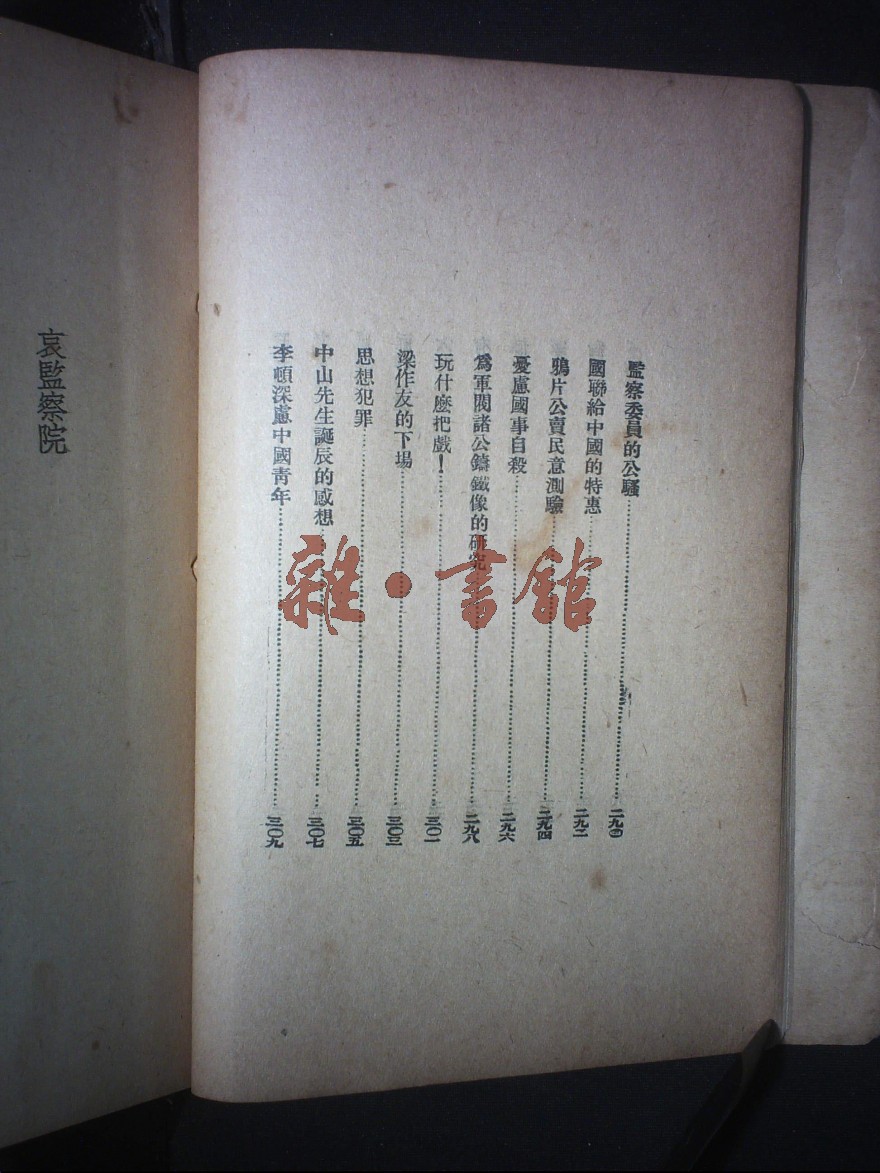 監察委員的公騷……二九〇
國聯給中國的特惠……二九二
鴉片公賣民意測驗……二九四
憂慮國事自殺……二九六
爲軍閥諸公鑄鐵像的研究……二九八
玩什麽把戲！……三〇一
梁作友的下場……三〇三
思想犯罪……三〇五
中山先生誕辰的感想……三〇七
李頓深慮中國靑年……三〇九
哀監察院
雜·書館